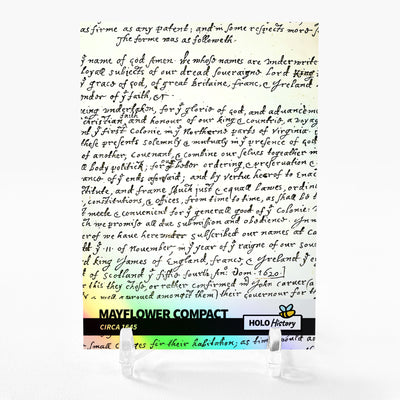 as firme as any patent; and in some respects more s
The forme was as followeth.
yͤ name of god Amen. We whose names are underwrite
loyal subjects of our dread soveraigne Lord King
yͤ grace of God, of great britaine, franc, & Ireland
endor of yͤ faith, &c
ving undertaken, for yͤ glorie of god, and advanceme
christian faith and honour of our king & countrie, a voyag
nt yͤ first colonie in yͤ Northerne parts of Virginia.
these presents solemnly & mutualy in yͤ presence of God
of another, covenant, & combine our selves togeather in
body politick; for our better ordering, & preservation &
ance of yͤ ends aforesaid; and by vertue hearof to enac
stitute, and frame shuch just & equall lawes, ordin
, constitutions, & offices, from time to time, as shall be t
t meete & convenient for yͤ generall good of yͤ Colonie:
ch we promise all due submission and obedience. In
erof we have here under subscribed our names at Ca
yͤ ·11· of November, in yͤ year of yͤ raigne of our sou
d king James of England, france, & Ireland yͤ
of Scotland yͤ fiftie fourth. Ano: Dom. 1620.]
r this they chose, or rather confirmed mr John carver (a
& well approved amongst them) their Governour for
MAYFLOWER COMPACT
CIRCA 1645
HOLO History
Small cottages for their habitation; as time would a